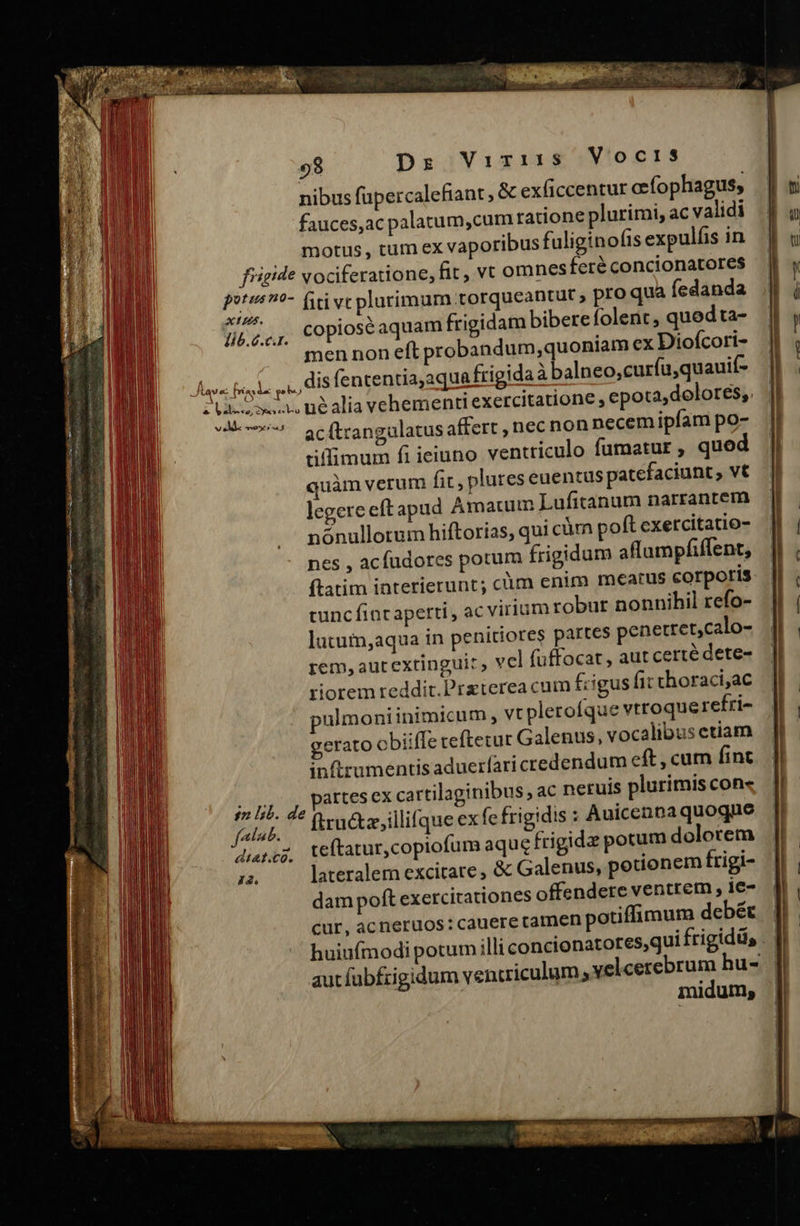 98 De Vitiis Vocis
nibus ſupercalefiant, & exſiccentur œſophagus,
fauces, ac palatum, cum ratione plurimi, ac validi
motus, tum ex vaporibus fuliginoſis expulſis in
frigidę vociferatione, fit, vt omnes ferè concionatores
potus no- ſiti vt plurimum torqueantur, pro qua ſedanda
xius. copiosè aquam frigidam bibere ſolent, quod ta-
lib.6.c.1. men non eſt probandum, quoniam ex Dioſcori-
dis ſententia, aqua frigida à balneo, curſu, quauiſ-
nè alia vehementi exercitatione, epota, dolores,
ac ſtrangulatus affert, nec non necem ipſam po-
tiſſimum ſi ieiuno ventriculo ſumatur, quod
quàm verum ſit, plures euentus patefaciunt, vt
legere eſt apud Amatum Luſitanum narrantem
nónullorum hiſtorias, qui cùm poſt exercitatio-
nes, ac ſudores potum frigidum aſſumpſiſſent,
ſtatim interierunt; cùm enim meatus corporis
tunc ſint aperti, ac virium robur nonnihil reſo-
lutum, aqua in penitiores partes penetret, calo-
rem, aut extinguit, vel ſuffocat, aut certè dete-
riorem reddit. Præterea cum frigus ſit thoraci, ac
pulmoni inimicum, vt pleroſque vtroque refri-
gerato obiiſſe teſtetur Galenus, vocalibus etiam
inſtrumentis aduerſari credendum eſt, cum ſint
partes ex cartilaginibus, ac neruis plurimis con-
in lib. de ſtructæ, illiſque ex ſe frigidis: Auicenna quoque
ſalub. teſtatur, copioſum aquę frigidæ potum dolorem
diat.cō. lateralem excitare, & Galenus, potionem frigi-
12. dam poſt exercitationes offendere ventrem, ie-
cur, ac neruos: cauere tamen potiſſimum debét
huiuſmodi potum illi concionatores, qui frigidū,
aut ſubfrigidum ventriculum, vel cerebrum hu-
midum,